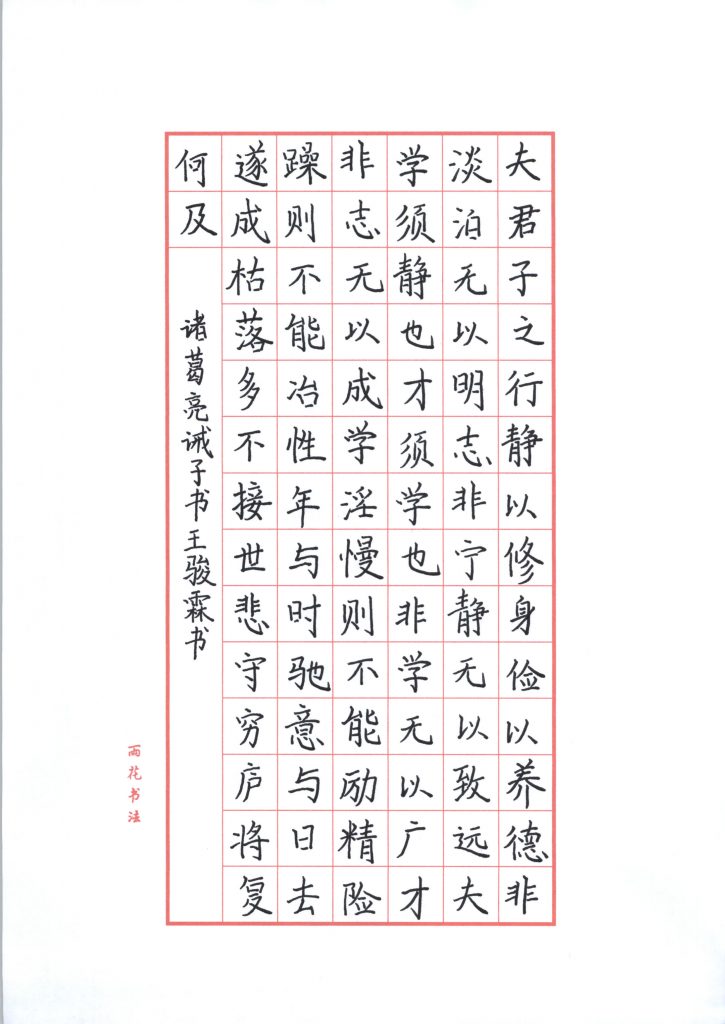 夫君子之行静以修身俭以养德非
淡泊无以明志非宁静无以致远夫
学须静也才须学也非学无以广才
非志无以成学淫慢则不能励精险
躁则不能冶性年与时驰意与日去
遂成枯落多不接世悲守穷庐将复
何及
诸葛亮诫子书王骏霖书
雨花书法